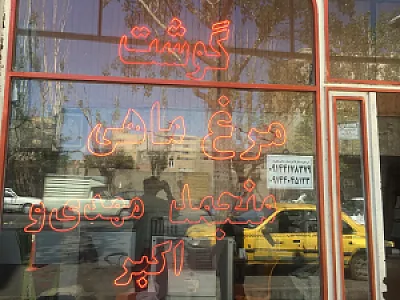 گوشت
مرغ ماهی
منجمد مهدی و
اکبر